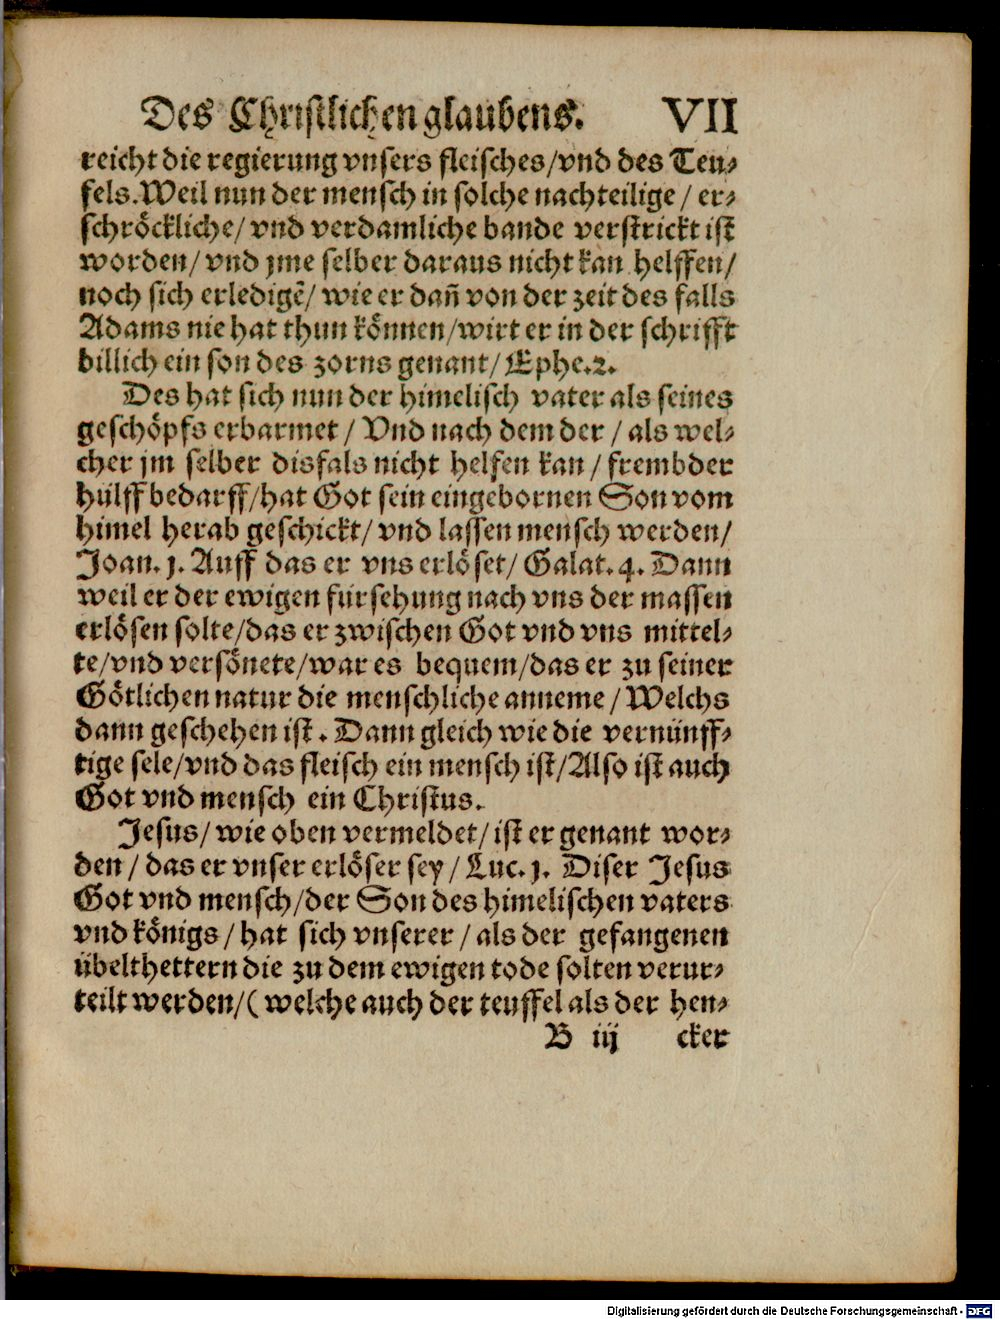 Des Christlichen glaubens. VII
reicht die regierung vnsers fleisches/vnd des Teu⸗
fels. Weil nun der mensch in solche nachteilige / er⸗
schröckliche/ vnd verdamliche bande verstrickt ist
worden/ vnd jme selber daraus nicht kan helffen/
noch sich erledigẽ/ wie er dañ von der zeit des falls
Adams nie hat thun können/wirt er in der schrifft
billich ein son des zorns genant/ Ephe.2.
Des hat sich nun der himelisch vater als seines
geschöpfs erbarmet / Vnd nach dem der / als wel⸗
cher jm selber disfals nicht helfen kan / frembder
hülff bedarff/hat Got sein eingebornen Son vom
himel herab geschickt/ vnd lassen mensch werden/
Joan. j. Auff das er vns erlöset/ Galat. 4. Dann
weil er der ewigen fürsehung nach vns der massen
erlösen solte/das er zwischen Got vnd vns mittel⸗
te/vnd versönete/war es bequem/das er zu seiner
Götlichen natur die menschliche anneme / Welchs
dann geschehen ist. Dann gleich wie die vernünff⸗
tige sele/vnd das fleisch ein mensch ist/Also ist auch
Got vnd mensch ein Christus.
Jesus/ wie oben vermeldet/ ist er genant wor⸗
den / das er vnser erlöser sey / Luc. j. Diser Jesus
Got vnd mensch/der Son des himelischen vaters
vnd königs / hat sich vnserer / als der gefangenen
übelthettern die zu dem ewigen tode solten verur⸗
teilt werden/( welche auch der teuffel als der hen⸗
B iij cker
Digitalisierung gefördert durch die Deutsche Forschungsgemeinschaft - DFG